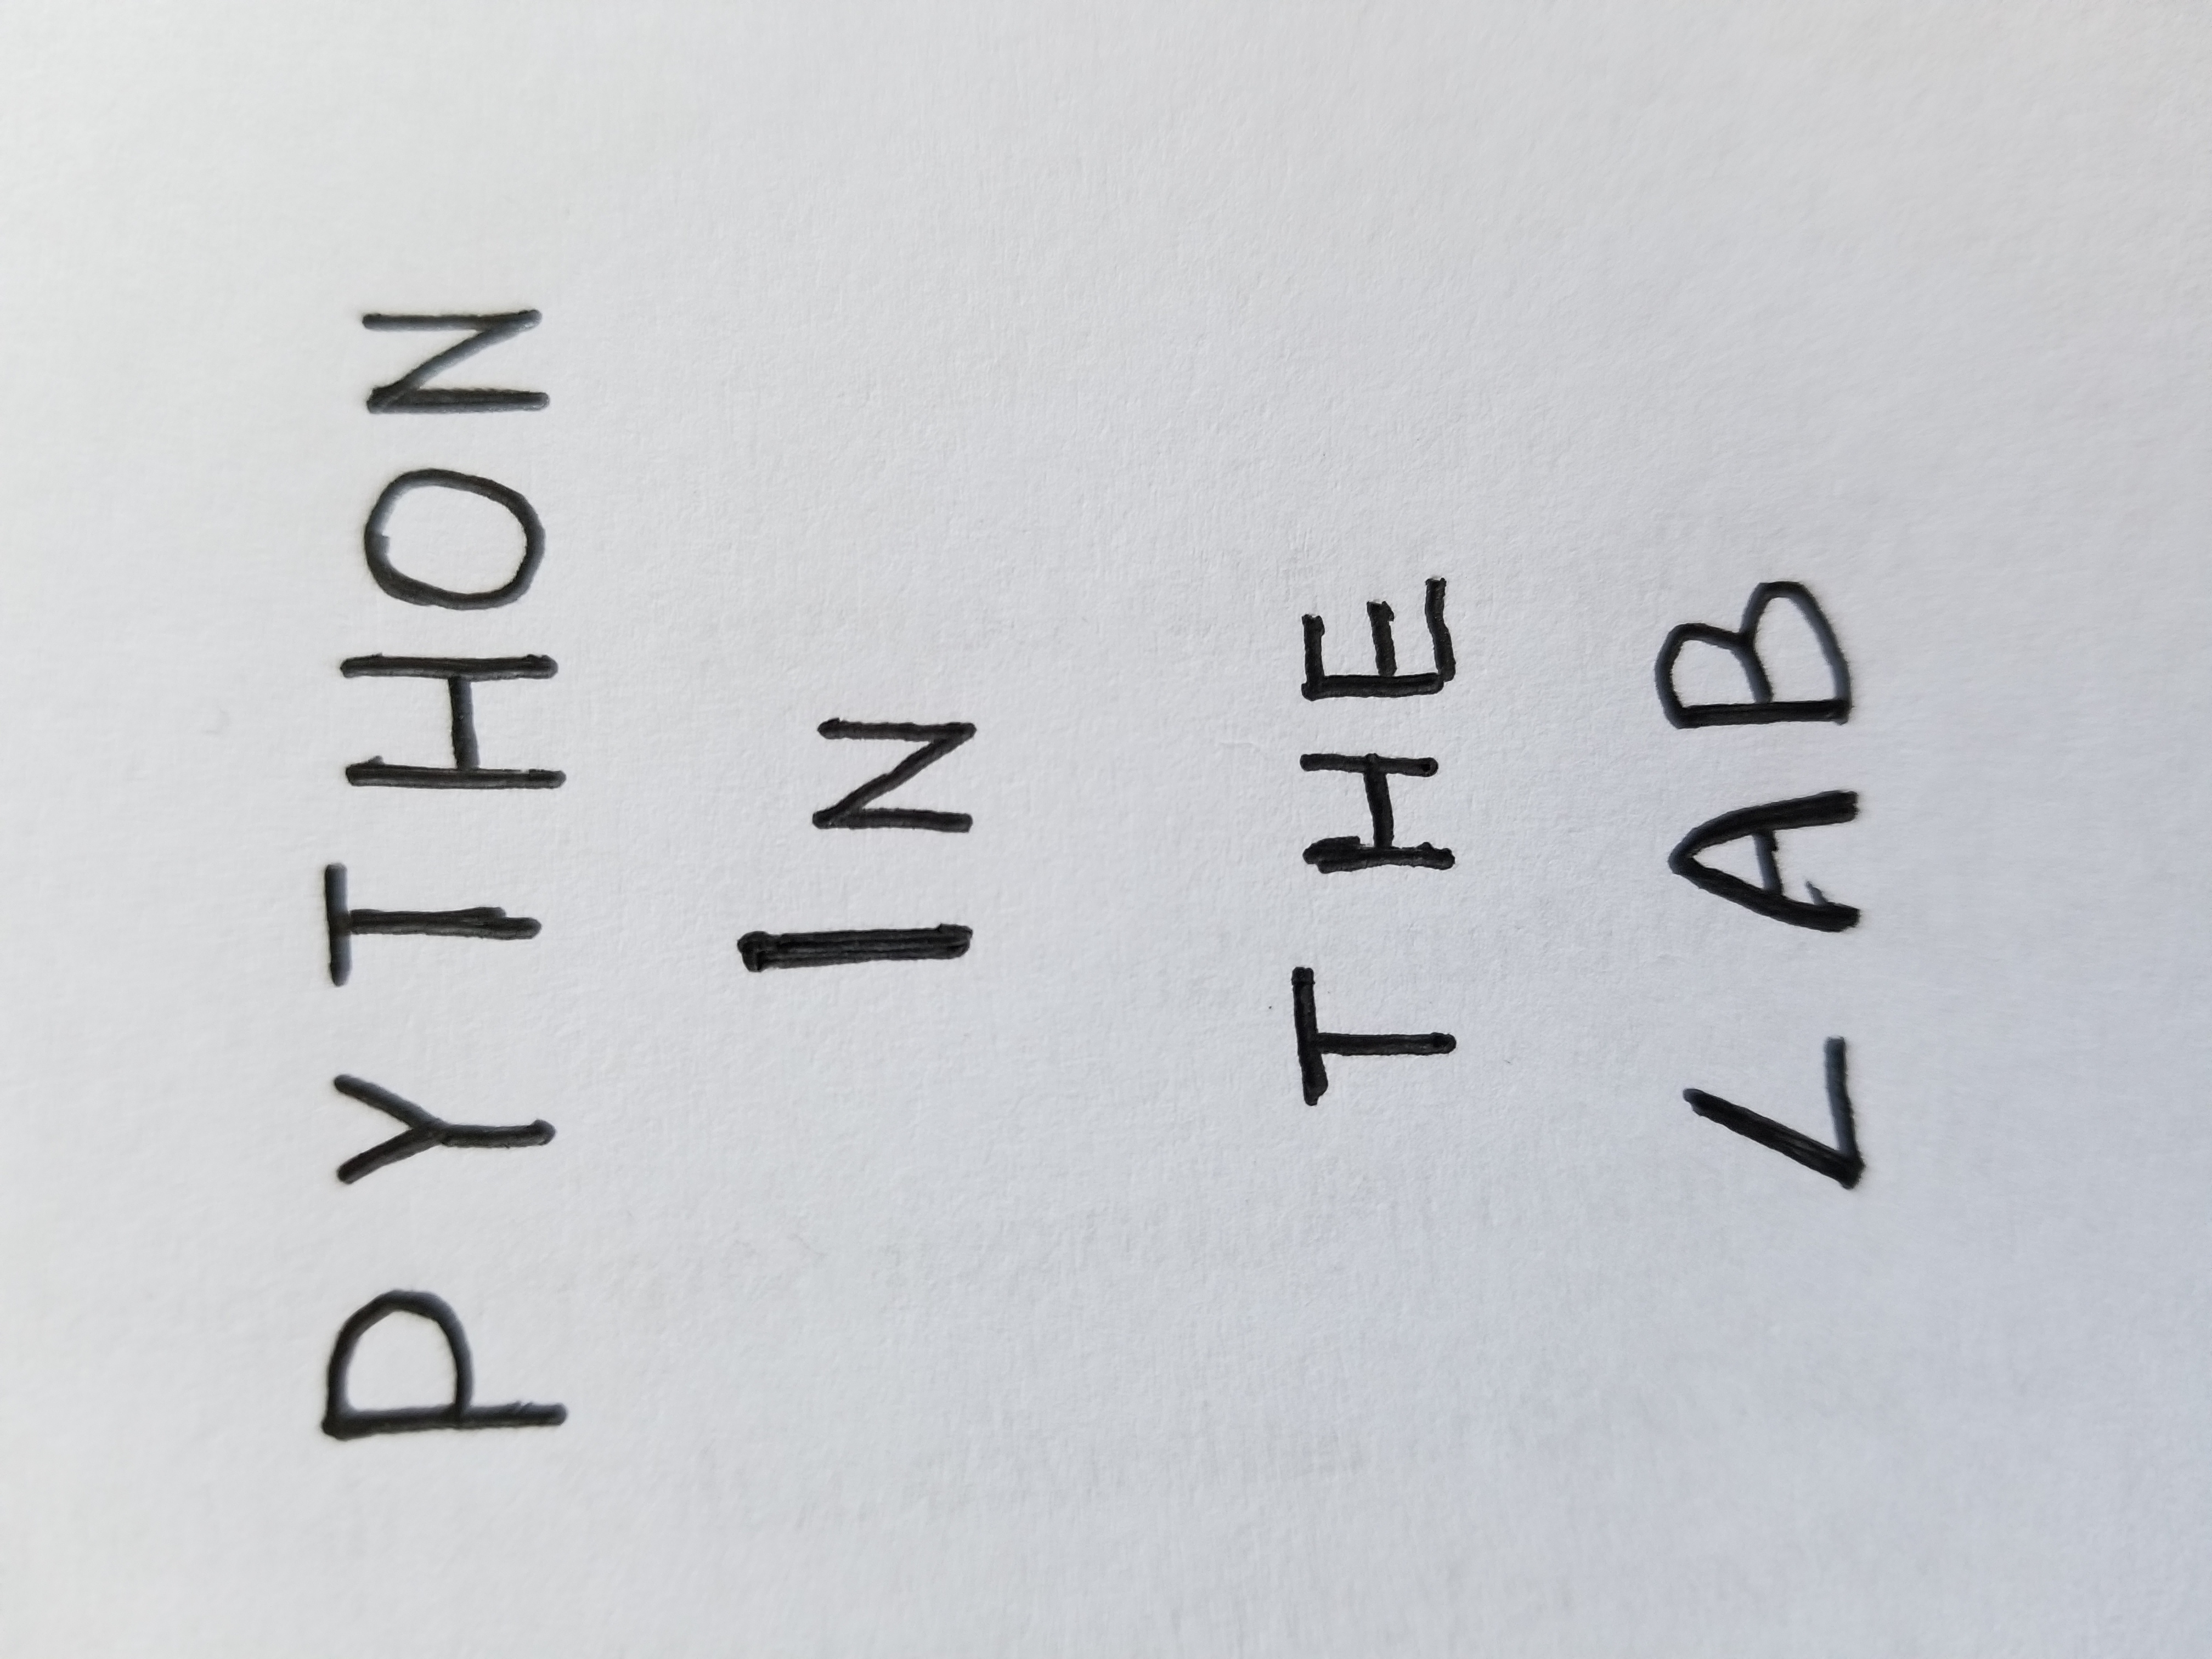 PYTHON
IN
THE
LAB